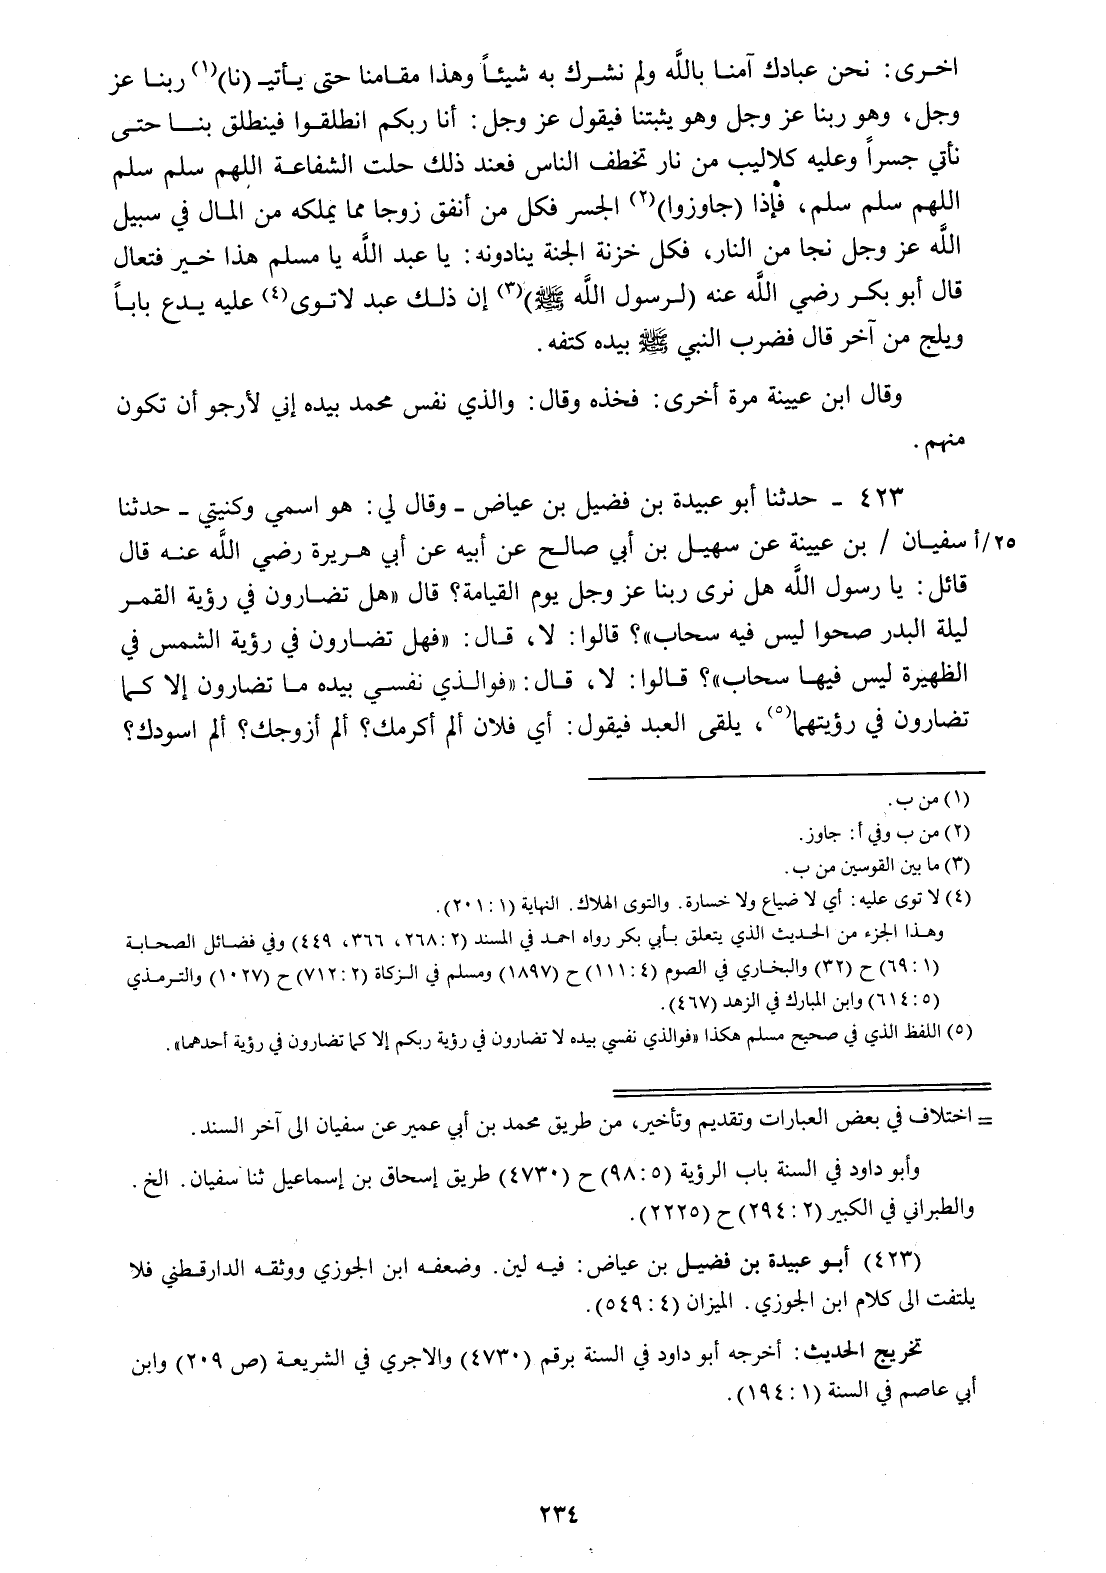 اخرى: نحن عبادك آمنا بالله ولم نشرك به شيئاً وهذا مقامنا حتى يأتيـ (نا)(١) ربنا عز
وجل، وهو ربنا عز وجل وهو يثبتنا فيقول عز وجل: أنا ربكم انطلقوا فينطلق بنا حتى
نأتي جسراً وعليه كلاليب من نار تخطف الناس فعند ذلك حلت الشفاعة اللهم سلم سلم
اللهم سلم سلم، فإذا (جاوزوا)(٢) الجسر فكل من أنفق زوجا مما يملكه من المال في سبيل
الله عز وجل نجا من النار، فكل خزنة الجنة ينادونه: يا عبد الله يا مسلم هذا خير فتعال
قال أبو بكر رضي الله عنه (لرسول الله ﷺ)(٣) إن ذلك عبد لاتوى(٤) عليه يدع باباً
ويلج من آخر قال فضرب النبي ﷺ بيده كتفه.
وقال ابن عيينة مرة أخرى: فخذه وقال: والذي نفس محمد بيده إني لأرجو أن تكون
منهم.
٤٢٣ - حدثنا أبو عبيدة بن فضيل بن عياض - وقال لي: هو اسمي وكنيتي - حدثنا
٢٥/أ سفيان / بن عيينة عن سهيل بن أبي صالح عن أبيه عن أبي هريرة رضي الله عنه قال
قائل: يا رسول الله هل نرى ربنا عز وجل يوم القيامة؟ قال «هل تضارون في رؤية القمر
ليلة البدر صحوا ليس فيه سحاب»؟ قالوا: لا، قال: «فهل تضارون في رؤية الشمس في
الظهيرة ليس فيها سحاب»؟ قالوا: لا، قال: «فوالذي نفسي بيده ما تضارون إلا كما
تضارون في رؤيتهما(٥)، يلقى العبد فيقول: أي فلان ألم أكرمك؟ ألم أزوجك؟ ألم اسودك؟
(١) من ب.
(٢) من ب وفي أ: جاوز.
(٣) ما بين القوسين من ب.
(٤) لا توى عليه: أي لا ضياع ولا خسارة. والتوى الهلاك. النهاية (١: ٢٠١).
وهذا الجزء من الحديث الذي يتعلق بأبي بكر رواه احمد في المسند (٢: ٢٦٨، ٣٦٦، ٤٤٩) وفي فضائل الصحابة
(١: ٦٩) ح (٣٢) والبخاري في الصوم (٤: ١١١) ح (١٨٩٧) ومسلم في الزكاة (٢: ٧١٢) ح (١٠٢٧) والترمذي
(٥: ٦١٤) وابن المبارك في الزهد (٤٦٧).
(٥) اللفظ الذي في صحيح مسلم هكذا «فوالذي نفسي بيده لا تضارون في رؤية ربكم إلا كما تضارون في رؤية أحدهما».
= اختلاف في بعض العبارات وتقديم وتأخير، من طريق محمد بن أبي عمير عن سفيان الى آخر السند.
وأبو داود في السنة باب الرؤية (٥: ٩٨) ح (٤٧٣٠) طريق إسحاق بن إسماعيل ثنا سفيان. الخ.
والطبراني في الكبير (٢: ٢٩٤) ح (٢٢٢٥).
(٤٢٣) أبو عبيدة بن فضيل بن عياض: فيه لين. وضعفه ابن الجوزي ووثقه الدارقطني فلا
يلتفت الى كلام ابن الجوزي. الميزان (٤: ٥٤٩).
تخريج الحديث: أخرجه أبو داود في السنة برقم (٤٧٣٠) والاجري في الشريعة (ص ٢٠٩) وابن
أبي عاصم في السنة (١: ١٩٤).
٢٣٤